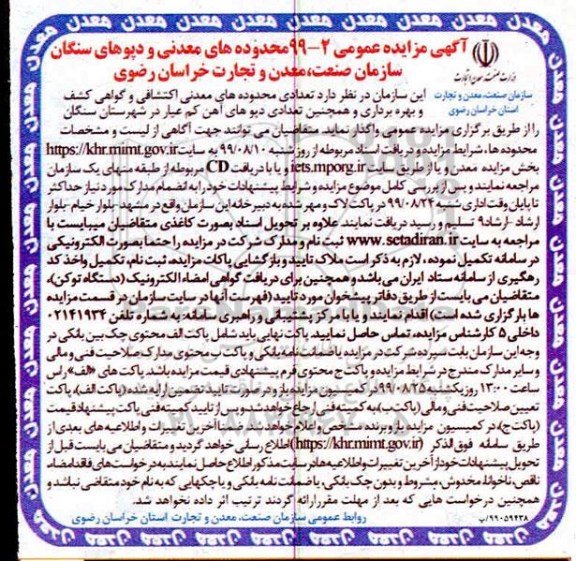 آگهی مزایده عمومی ۲-۹۹ محدوده های معدنی و دپوهای سنگان
سازمان صنعت، معدن و تجارت خراسان رضوی
سازمان صنعت، معدن و تجارت
استان خراسان رضوی
این سازمان در نظر دارد تعدادی محدوده های معدنی اکتشافی و گواهی کشف
و بهره برداری و همچنین تعدادی دپو های آهن کم عیار در شهرستان سنگان
را از طریق برگزاری مزایده عمومی واگذار نماید. متقاضیان می توانند جهت آگاهی از لیست و مشخصات
محدوده ها، شرایط مزایده و دریافت اسناد مربوطه از روز شنبه ۹۹/۰۸/۱۰ به سایت https://khr.mimt.gov.ir
بخش مزایده معدن و یا از طریق سایت iets.mporg.ir و یا با دریافت CD مربوطه از طبقه منهای یک سازمان
مراجعه نمایند و پس از بررسی کامل موضوع مزایده و شرایط پیشنهادات خود را به انضمام مدارک مورد نیاز حداکثر
تا پایان وقت اداری شنبه ۹۹/۰۸/۲۴ در پاکت لاک و مهر شده به دبیرخانه این سازمان واقع در مشهد- بلوار خیام- بلوار
ارشاد -ارشاد۹ تسلیم و رسید دریافت نمایند. علاوه بر تحویل اسناد بصورت کاغذی متقاضیان میبایست با
مراجعه به سایت www.setadiran.ir ثبت نام و مدارک شرکت در مزایده را حتما بصورت الکترونیکی
در سامانه تکمیل نموده، لازم به ذکر است ملاک تایید و بازگشایی پاکات مزایده، ثبت نام، تکمیل و اخذ کد
رهگیری از سامانه ستاد ایران می باشد و همچنین برای دریافت گواهی امضاء الکترونیک (دستگاه توکن)،
متقاضیان می بایست از طریق دفاتر پیشخوان مورد تایید (فهرست آنها در سایت سازمان در قسمت مزایده
ها بارگزاری شده است) اقدام نمایند و یا با مرکز پشتیبانی و راهبری سامانه، به شماره تلفن ۰۲۱۴۱۹۳۴
داخلی ۵ کارشناس مزایده، تماس حاصل نمایید. پاکت نهایی باید شامل پاکت الف محتوی چک بین بانکی در
وجه این سازمان بابت سپرده شرکت در مزایده یا ضمانت نامه بانکی و پاکت ب محتوی مدارک صلاحیت فنی و مالی
و سایر مدارک مندرج در شرایط مزایده و پاکت ج محتوی فرم پیشنهادی قیمت مزایده باشد. پاکت های «الف» راس
ساعت ۱۳:۰۰ روز یکشنبه ۹۹/۰۸/۲۵ در کمیسیون مزایده باز و در صورت تایید تضمین ارایه شده (پاکت الف)، پاکت
تعیین صلاحیت فنی و مالی (پاکت ب)، به کمیته فنی ارجاع خواهد شد و پس از تایید کمیته فنی پاکت پیشنهاد قیمت
(پاکت ج)، در کمیسیون مزایده باز و برنده مشخص و اعلام خواهد شد. ضمنا آخرین تغییرات و اطلاعیه های بعدی از
طریق سامانه فوق الذکر (https://khr.mimt.gov.ir) اطلاع رسانی خواهد گردید و متقاضیان می بایست قبل از
تحویل پیشنهادات خود از آخرین تغییرات و اطلاعیه ها در سایت مذکور اطلاع حاصل نمایند به درخواست های فاقد امضاء،
ناقص، ناخوانا، مخدوش، مشروط و بدون چک بانکی، یا ضمانت نامه بانکی و یا چکهایی که به نام خود متقاضی نباشد و
همچنین درخواست هایی که بعد از مهلت مقرر ارائه گردند ترتیب اثر داده نخواهد شد.
روابط عمومی سازمان صنعت، معدن و تجارت استان خراسان رضوی
۹۹۰۵۹۴۳۸/پ